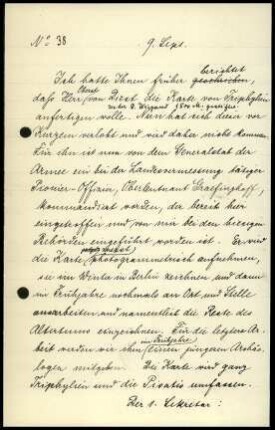 No 38 9. Sept.
berichtet
Ich hatte Ihnen früher geschrieben,
Oberst
daß Herr von Diest die Karte von Triphylien
unter D. Wiegand
anfertigen wolle. Nun hat sich dieser vor
Kurzem verlobt und wird daher nicht kommen.
Für ihn ist nun von dem Generalstab der
Armee ein bei der Landesvermessung tätiger
Pionier-Offizier, Oberleutnant Graefinghoff,
kommandiert worden, der bereits hier
eingetroffen und von mir bei den hiesigen
Behörden eingeführt worden ist. Er wird
die Karte photogrammetrisch aufnehmen,
sie im Winter in Berlin zeichnen und dann
im Frühjahre nochmals an Ort und Stelle
ausarbeiten und namentlich die Reste des
Altertums einzeichnen. Für die letztere Ar-
im Frühjahre
beit werden wir ihm einen jüngeren Archäo-
logen mitgeben. Die Karte wird ganz
Triphylien und die Pisatis umfassen.
Der 1. Sekretar: